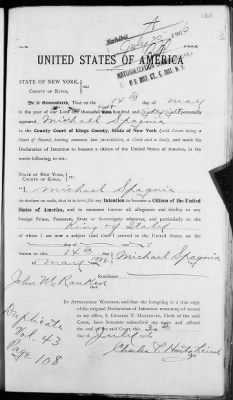 UNITED STATES OF AMERICA
STATE OF NEW YORK,
COUNTY OF KINGS,
Be it Remembered, That on the 14th day of May
in the year of our Lord one thousand eight hundred and
appeared Michael Spagnia
in the County Court of Kings County, State of New York (said Court being a
Court of Record, having common law jurisdiction, a Clerk and a Seal), and made his
Declaration of Intention to become a citizen of the United States of America, in the
words following, to wit:
STATE OF NEW YORK,
COUNTY OF KINGS,
I, Michael Spagnia
do declare on oath, that it is bona fide my Intention to become a Citizen of the United
States of America, and to renounce forever all allegiance and fidelity to any
foreign Prince, Potentate, State or Sovereignty whatever, and particularly to the
King of Italy
of whom I am now a subject
Sworn to this 14th
Michael Spagnia
day of May
Residence
John M. Rankin
IN ATTESTATION WHEREOF, and that the foregoing is a true copy
of the original Declaration of Intention remaining of record
in my office, I, CHARLES T. HARTZHEIM, Clerk of the said
Court, have hereunto subscribed my name and affixed
the seal of the said Court, this
day of
Charles T. Hartzheim
Duplicate
Vol. 43
Page 108